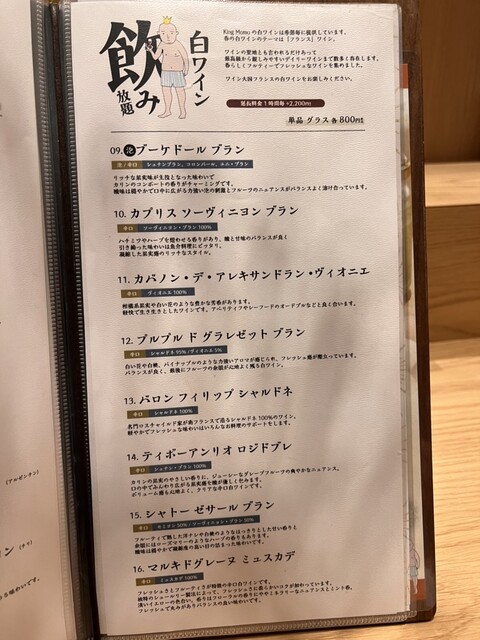 飲み
放題
白ワイン
King Momo の白ワインは季節毎に提供しています。
春の白ワインのテーマは「フランス」ワイン。
ワインの聖地とも言われるだけあって
最高級から親しみやすいデイリーワインまで数多く存在します。
春らしくフルティーでフレッシュなワインを集めました。
ワイン大国フランスの白ワインをお楽しみください。
延長料金 1時間毎 +2,200円
単品 グラス 各 800円
09. 泡 ブーケドール ブラン
泡 / 辛口 シュナンブラン、コロンバール、ユニ・ブラン
リッチな果実味が主役となった味わいで
カリンのコンポートの香りがチャーミングです。
酸味は穏やかで口中に広がる力強い泡の刺激とフルーツのニュアンスがバランスよく溶け合っています。
10. カプリス ソーヴィニヨン ブラン
辛口 ソーヴィニヨン・ブラン 100%
ハチミツやハーブを想わせる香りがあり、酸と甘味のバランスが良く
引き締った味わいは魚介料理にピッタリ。
凝縮した果実感のリッチなスタイル。
11. カバノン・デ・アレキサンドラン・ヴィオニエ
辛口 ヴィオニエ 100%
柑橘系果実や白い花のような豊かな芳香があります。
軽快で生き生きとしたワインです。アペリティフやシーフードのオードブルなどと良く合います。
12. プルプル ド グラレゼット ブラン
辛口 シャルドネ 95% / ヴィオニエ 5%
白い花や白桃、パイナップルのような力強いアロマが感じられ、フレッシュ感が際立っています。
バランスが良く、最後にフルーツの余韻が心地よく残る白ワイン。
13. バロン フィリップ シャルドネ
辛口 シャルドネ 100%
名門ロスチャイルド家が南フランスで造るシャルドネ 100%のワイン。
軽やかでフレッシュな味わいはいろんなお料理のサポートをします。
14. ティボーアンリオ ロジドブレ
辛口 シュナン・ブラン 100%
カリンの果実のやさしい香りに、ジューシーなグレープフルーツの爽やかなニュアンス。
口の中でふんわり広がる果実感を酸が優しく包みます。
ボリューム感も心地よく、クリアな辛口白ワインです。
15. シャトー ゼサール ブラン
辛口 セミヨン 50% / ソーヴィニョン・ブラン 50%
フルーティで熟した洋ナシや白桃のようなはっきりとした甘い香りと
余韻にはローズマリーのようなハーブの香りもあります。
酸味は穏やかで凝縮度の高い目の詰まった味わいです。
16. マルキドグレーヌ ミュスカデ
辛口 ミュスカデ 100%
フレッシュさとフルーティさが特徴の辛口白ワインです。
淡いイエローの色合い。香りはフローラルの香りにややミネラリーなニュアンスとミント香。
フレッシュで丸みがありバランスの良い味わいです。
(アルゼンチン)
(チリ)